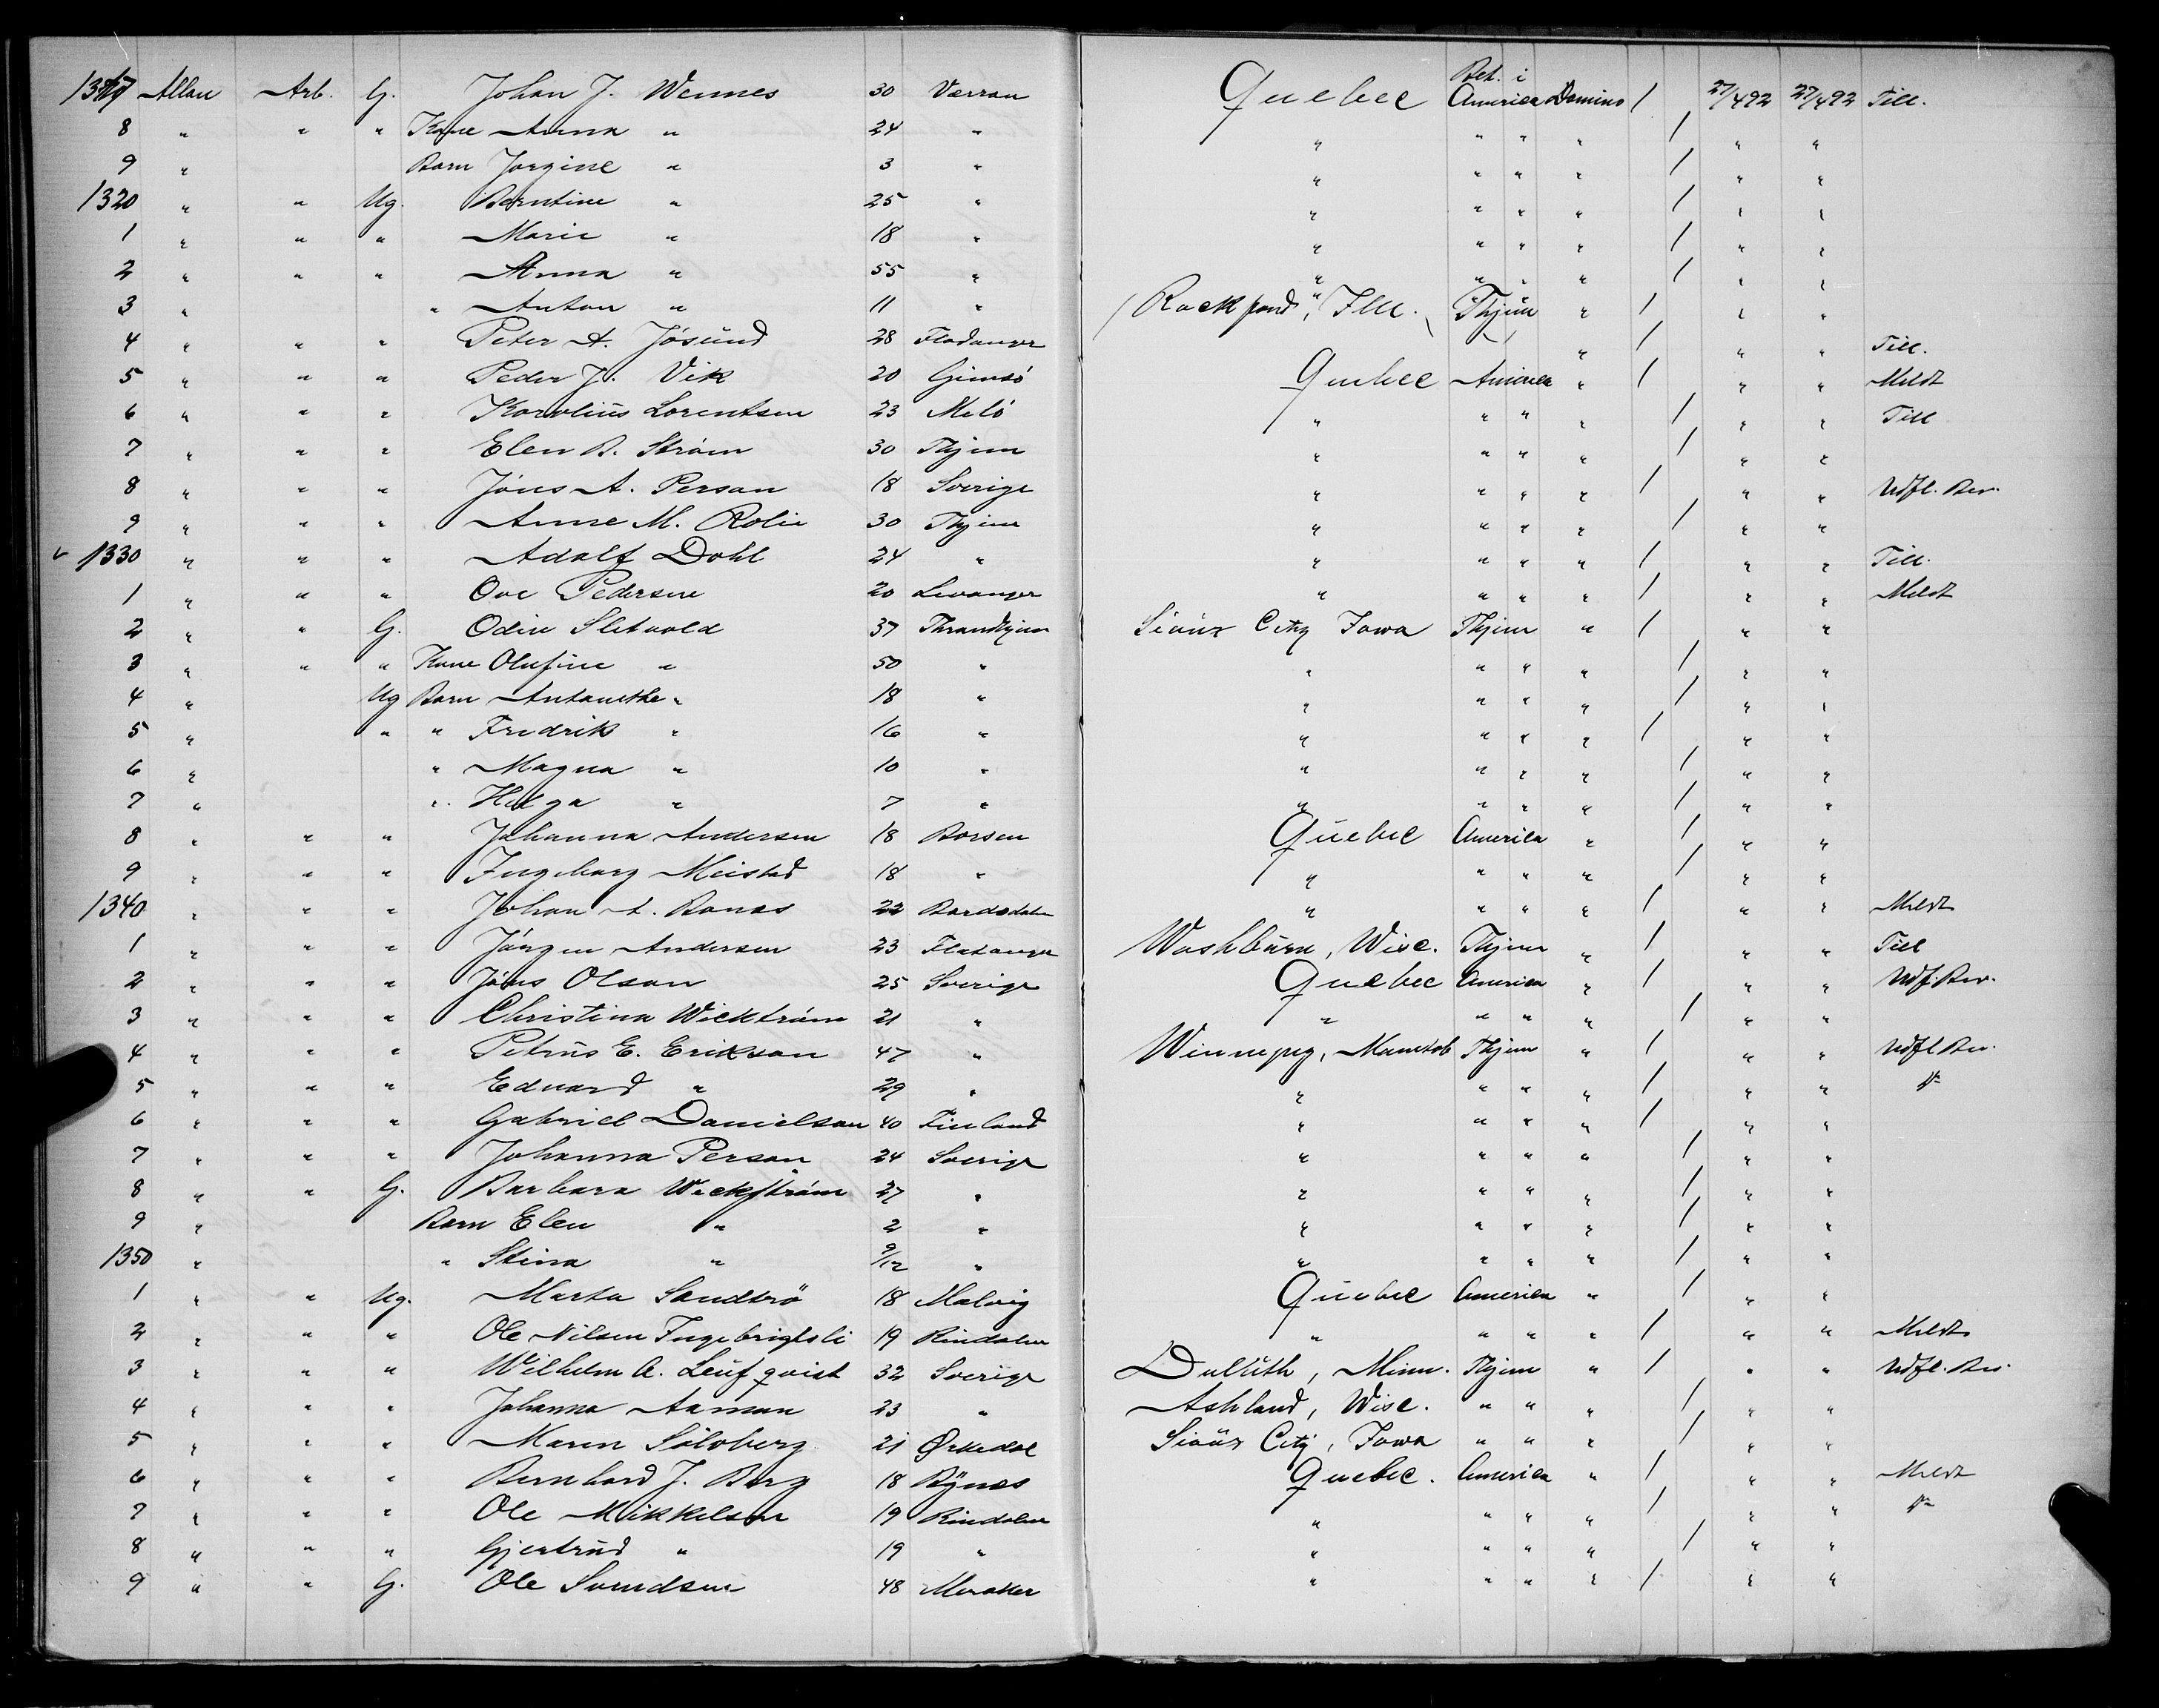 1317 Allan Arb. G. Johan J. Wennes 30 Værran Quebec Bet. i America Domino / 27/4 92 27/4 92 Till.
8 " " " Kone Anna " 24 " " " " " / " "
9 " Barn Jorgine " 3 " " " " " / " "
1320 " " Ug. Berntine " 25 " " " " " / " "
1 " " " Marie " 18 " " " " " / " "
2 " " " Anna " 55 " " " " " / " "
3 " " Anton " 11 " " (Rockford, Ill. Thjem " / " "
4 " " " Peter A. Jösund 28 Fladanger " / " " Till.
5 " " " Peder J. Vik 20 Gimsö Quebec America " / " " Meldt
6 " " " Karolius Lorentsen 23 Melö " " " " / " " Till
7 " " " Elen B. Ström 30 Thjem " " " " / " "
8 " " " Jöns A. Person 18 Sverige " " " " / " " Udfl. Bev.
9 " " " Anne M. Rolie 30 Thjem " " " " / " "
1330 " " " Adolf Dahl 24 " " " " " / " " Till.
1 " " " Ove Pedersen 20 Levanger " " " " / " " Meldt
2 " " G. Odin Sletvold 37 Throndhjem Sioux City Iowa Thjem " / " "
3 " " " Kone Olufine " 50 " " " " " / " "
4 " Ug Barn Antonethe " 18 " " " " " / " "
5 " " " Fredrik " 16 " " " " " / " "
6 " " Magna " 10 " " " " " / " "
7 " " Helga " 7 " " " " " / " "
8 " " " Johanna Andersen 18 Børsen Quebec America " / " "
9 " " " Ingeborg Meistad 18 " " " " " / " "
1340 " " " Johan A. Bonæs 22 Bardodalen " " " " / " " Meldt
1 " " " Jörgen Andersen 23 Flatanger Washburn, Wisc. Thjem " / " " Till
2 " " " Jöns Olson 25 Sverige Quebec America " / " " Udf. Bev.
3 " " " Christina Wicktröm 21 " " " " " / " "
4 " " " Petrus E. Erikson 47 " Winnepeg, Manitob Thjem " / " " Udfl Bev.
5 " " " Edvard " 29 " " " " " / " "
6 " " " Gabriel Danielson 40 Finland " " " " / " "
7 " " " Johanna Person 24 Sverige " " " " / " "
8 " " G. Barbara Wickström 27 " " " " " / " "
9 " Barn Elen " 2 " " " " " / " "
1350 " " Stina " 9/12 " " " " " / " "
1 " " Ug. Marta Sandtrö 18 Malvig Quebec America " / " "
2 " " " Ole Nilsen Ingebrigtsli 19 Rindalen " " " " / " " Meldt
3 " " " Wilhelm A. Leufqvist 32 Sverige Duluth, Minn. Thjem " / " " Udfl. Bev.
4 " " " Johanna Aaman 23 " Ashland, Wisc. " " " / " "
5 " " " Maren Sölvberg 21 Ørkedal Sioux City, Iowa " " " / " "
6 " " " Bernhard J. Berg 18 Bynæs Quebec. America " / " " Meldt
7 " " " Ole Mikkelsen 19 Rindalen " " " " / " "
8 " " " Gjertrud " 19 " " " " " / " "
9 " " G. Ole Svendsen 48 Meraker " " " " / " "